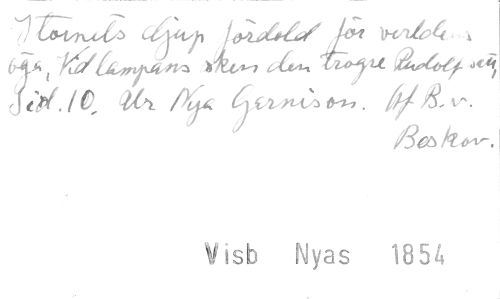 I tornets djup fördold för verldens
öga, Vid lampans sken den trogre Rudolf satt
Sid. 10. Ur Nya Garnison. Af B. v.
Beskov.
Visb Nyas 1854